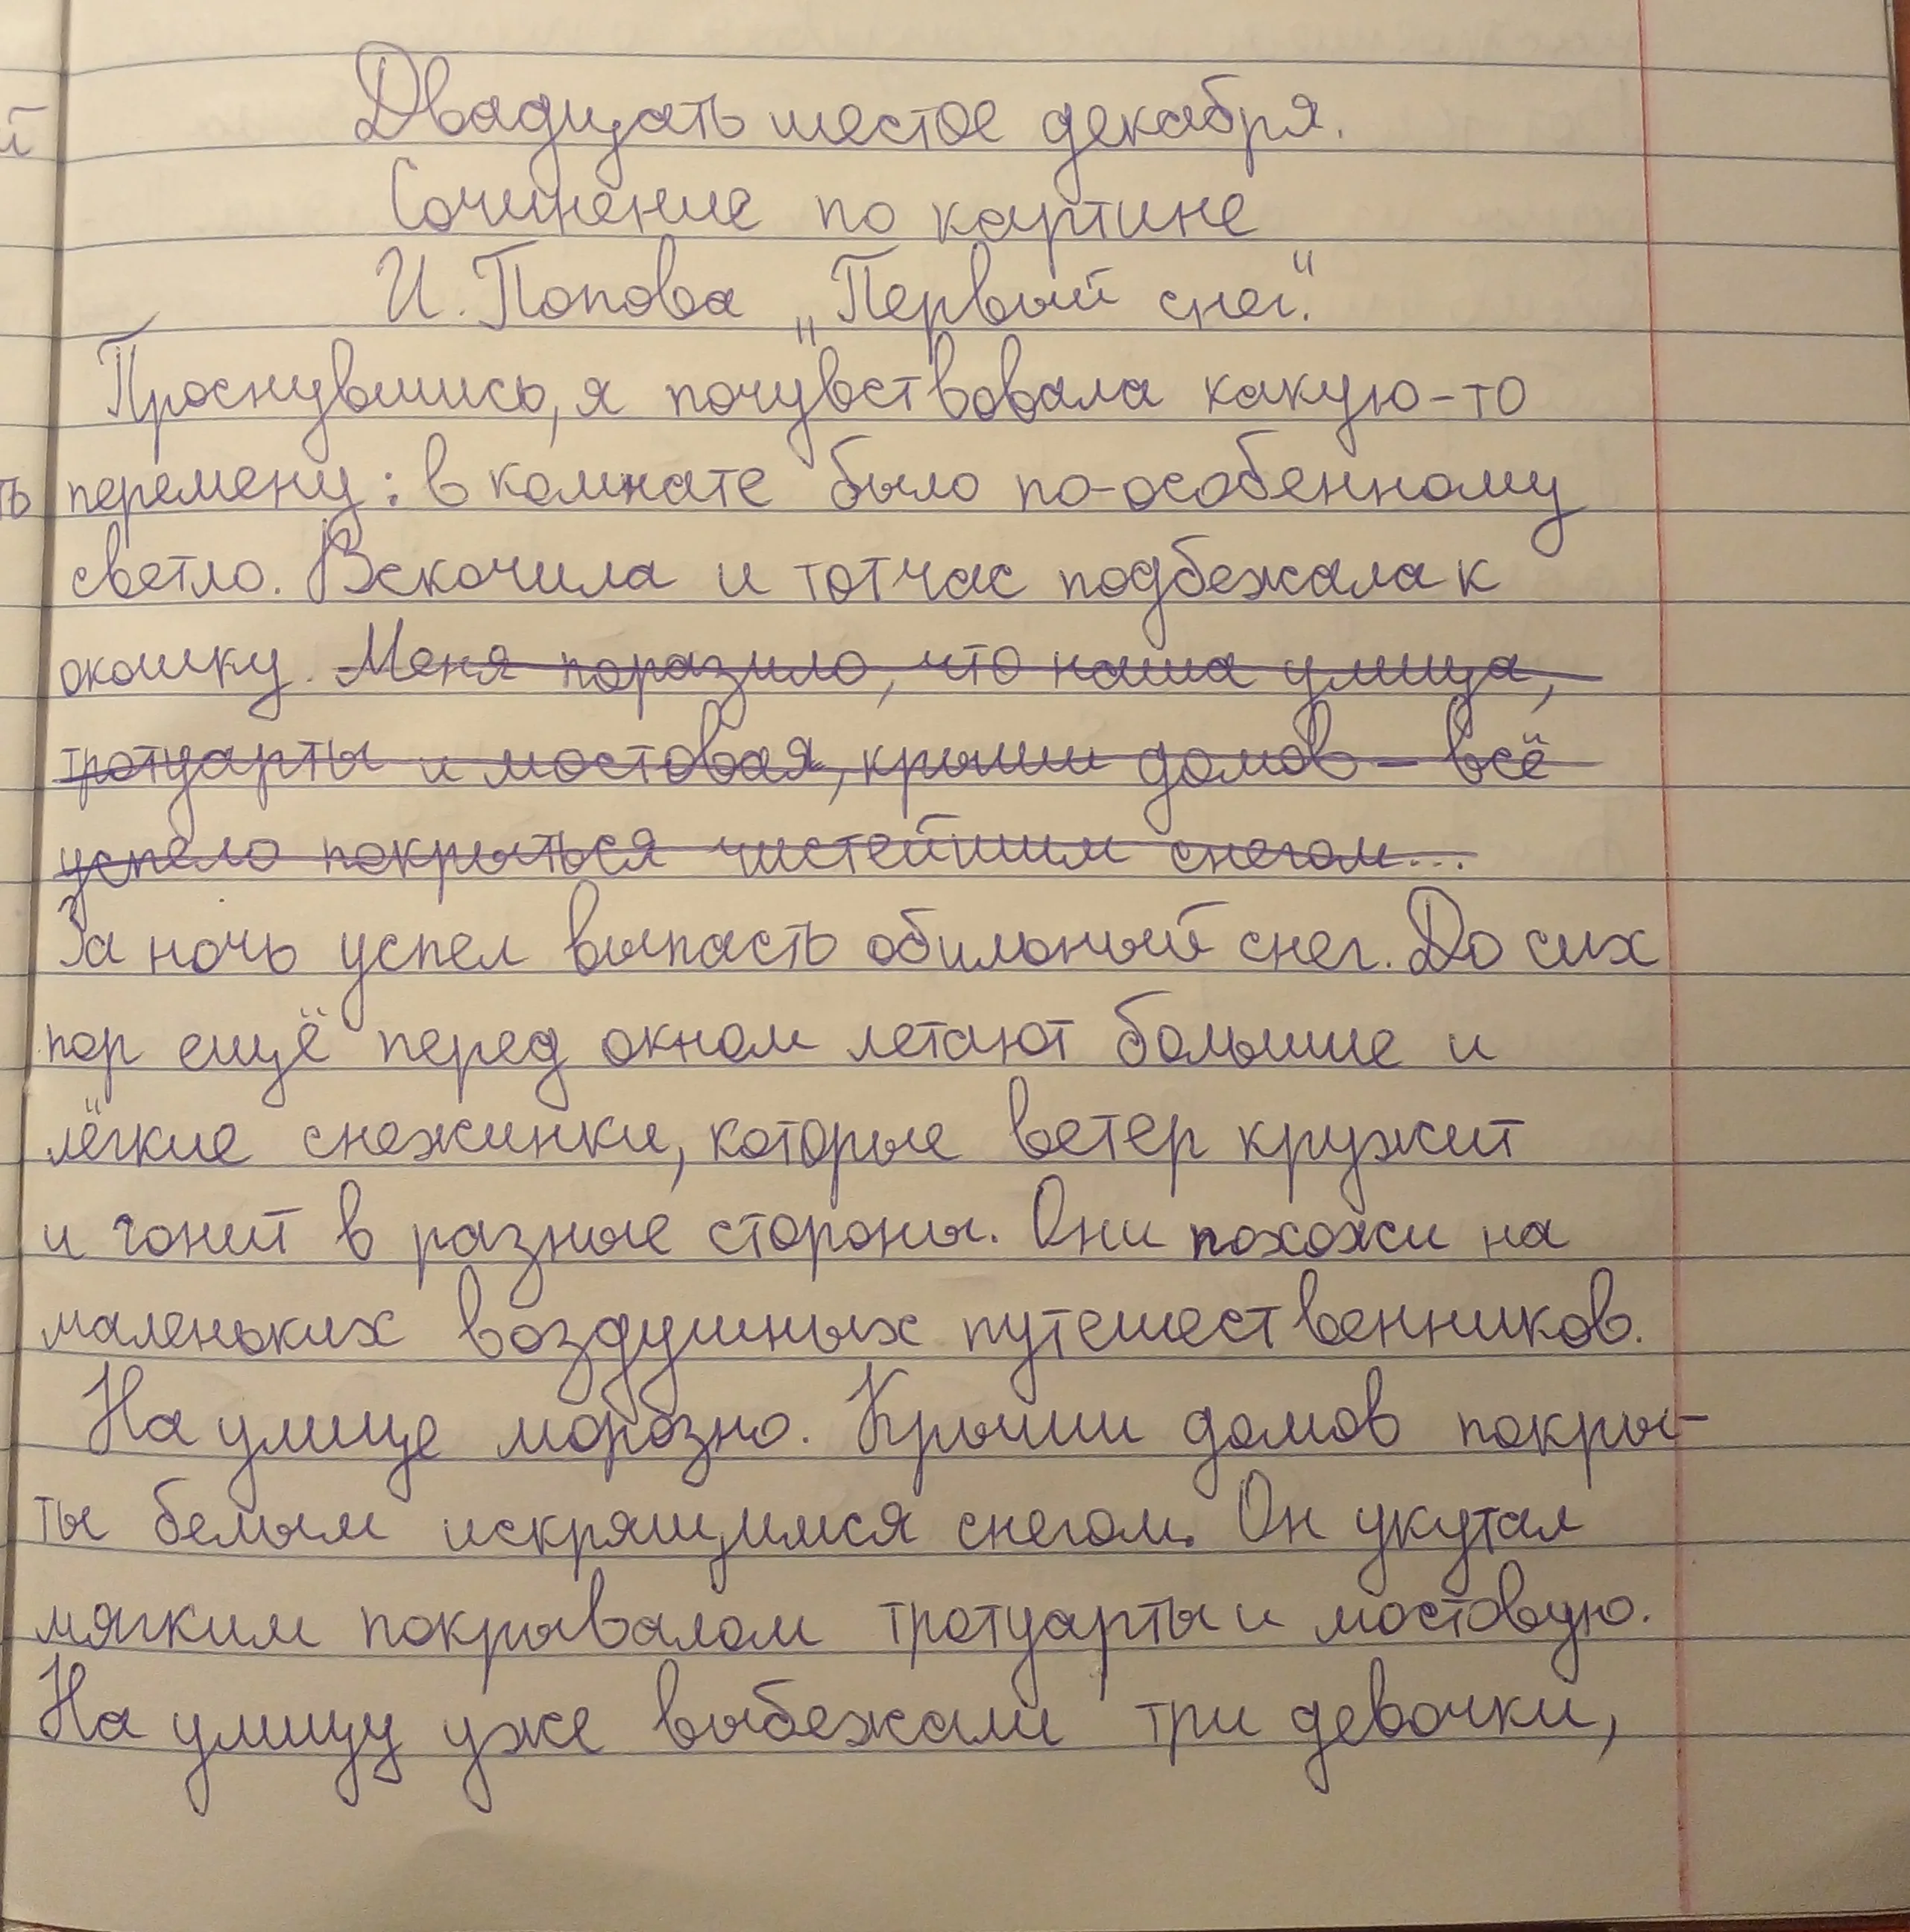 Двадцать шестое декабря.
Сочинение по картине
И. Попова „Первый снег".
Проснувшись, я почувствовала какую-то
перемену: в комнате было по-особенному
светло. Вскочила и тотчас подбежала к
окошку. Меня поразило, что наша улица,
тротуарты и мостовая, крыши домов – всё
успело покрыться чистейшим снегом...
За ночь успел выпасть обильный снег. До сих
пор ещё перед окном летают большие и
лёгкие снежинки, которые ветер кружит
и гонит в разные стороны. Они похожи на
маленьких воздушных путешественников.
На улице морозно. Крыши домов покры-
ты белым искрящимся снегом. Он укутал
мягким покрывалом тротуарты и мостовую.
На улицу уже выбежали три девочки,